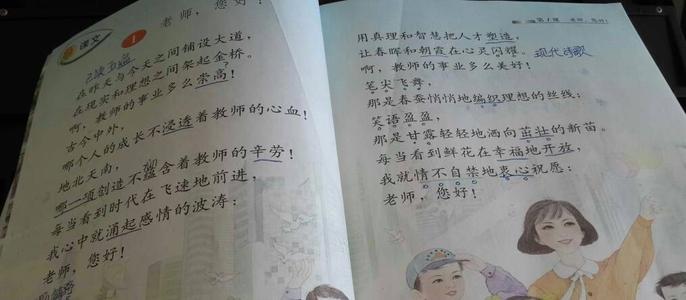 课文
1
老师，您好！
在昨天与今天之间铺设大道，
在现实和理想之间架起金桥。
啊，教师的事业多么崇高！
古今中外，
哪个人的成长不浸透着教师的心血！
地北天南，
哪一项创造不蕴含着教师的辛劳！
每当看到时代在飞速地前进，
我心中就涌起感情的波涛：
老师，您好！
第1课 老师，您好！
用真理和智慧把人才塑造，
让春晖和朝霞在心灵闪耀。
现代诗歌
啊，教师的事业多么美好！
笔尖飞舞，
那是春蚕悄悄地编织理想的丝线；
笑语盈盈，
那是甘露轻轻地洒向茁壮的新苗。
每当看到鲜花在幸福地开放，
我就情不自禁地衷心祝愿：
老师，您好！